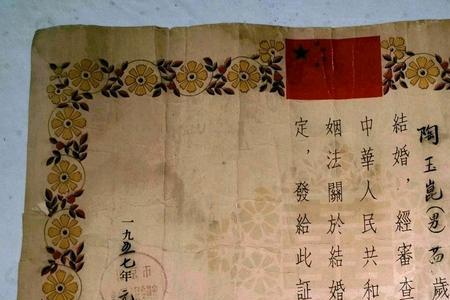 陶玉崑（男）
結婚，經審查
中華人民共和
姻法關於結婚
定，發給此証
一九五七年元